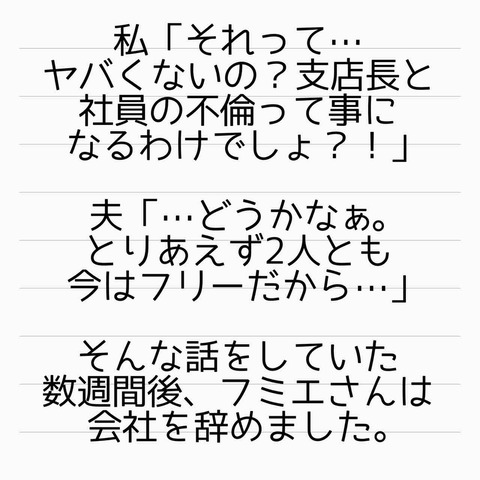 私「それって…
ヤバくないの？支店長と
社員の不倫って事に
なるわけでしょ？！」
夫「…どうかなぁ。
とりあえず2人とも
今はフリーだから…」
そんな話をしていた
数週間後、フミエさんは
会社を辞めました。